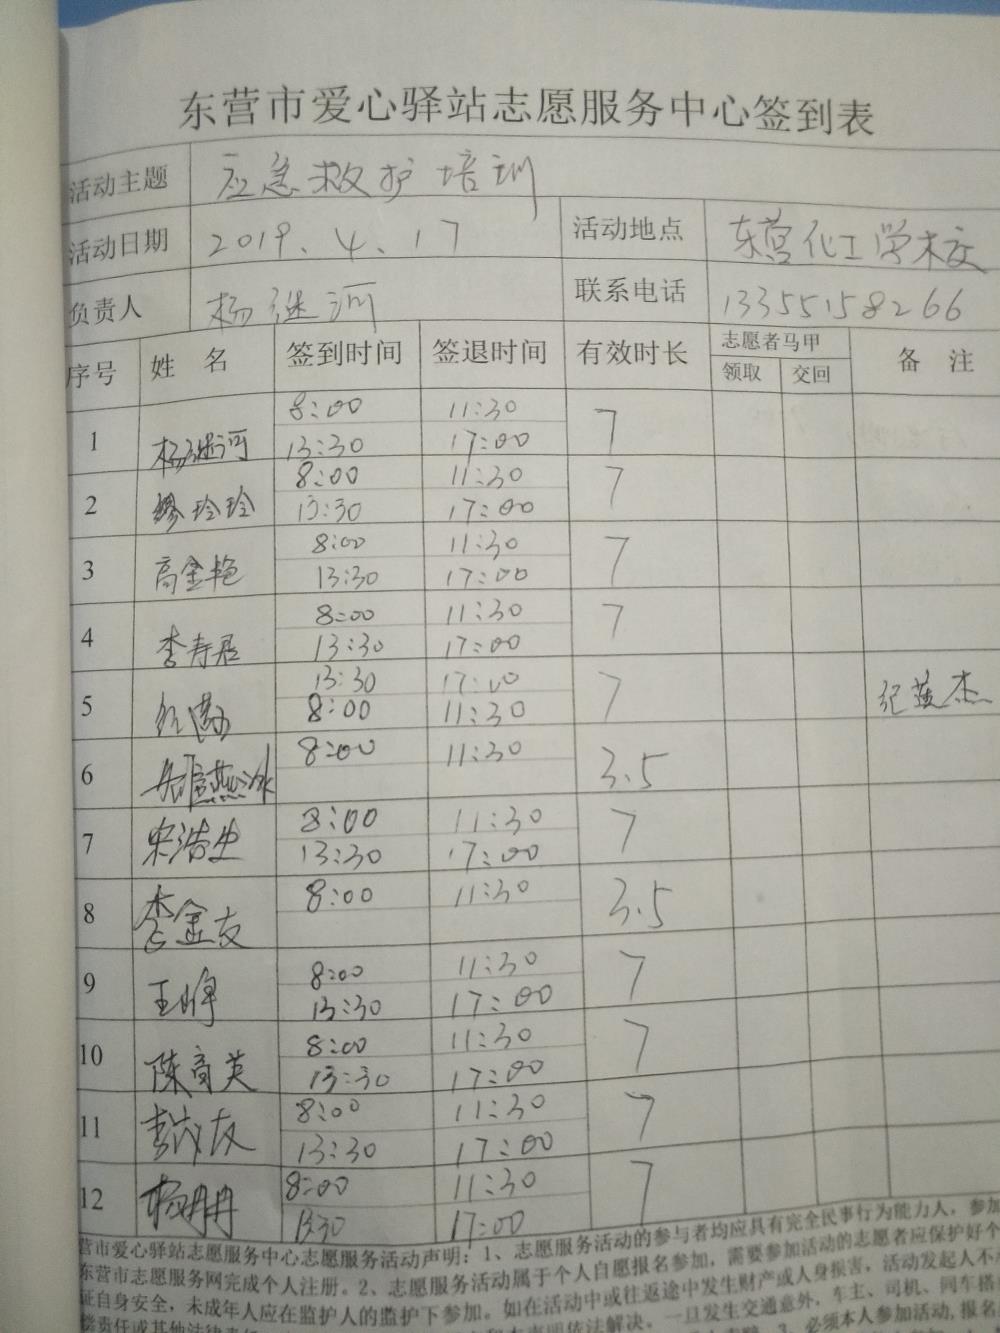 东营市爱心驿站志愿服务中心签到表
活动主题 应急救护培训
活动日期 2019.4.17 活动地点 东营化工学校
负责人 杨继河 联系电话 13355158266
序号 姓名 签到时间 签退时间 有效时长 志愿者马甲 备注
领取 交回
8:00 11:30
1 杨继河 13:30 17:00 7
8:00 11:30
2 缪玲玲 13:30 17:00 7
8:00 11:30
3 高金艳 13:30 17:00 7
8:00 11:30
4 李寿君 13:30 17:00 7
13:30 17:00
5 8:00 11:30 7 纪莲杰
6 8:00 11:30 3.5
8:00 11:30
7 宋浩生 13:30 17:00 7
8 李金友 8:00 11:30 3.5
8:00 11:30
9 王峥 13:30 17:00 7
8:00 11:30
10 陈高英 13:30 17:00 7
8:00 11:30
11 13:30 17:00 7
8:00 11:30
12 杨冉冉 1330 17:00 7
营市爱心驿站志愿服务中心志愿服务活动声明：1、志愿服务活动的参与者均应具有完全民事行为能力人，参加
东营市志愿服务网完成个人注册。2、志愿服务活动属于个人自愿报名参加，需要参加活动的志愿者应保护好个
证自身安全，未成年人应在监护人的监护下参加。如在活动中或往返途中发生财产或人身损害，活动发起人不
偿责任或其他法律责 依法解决。一旦发生交通意外，车主、司机、同车搭
3、必须本人参加活动,报名